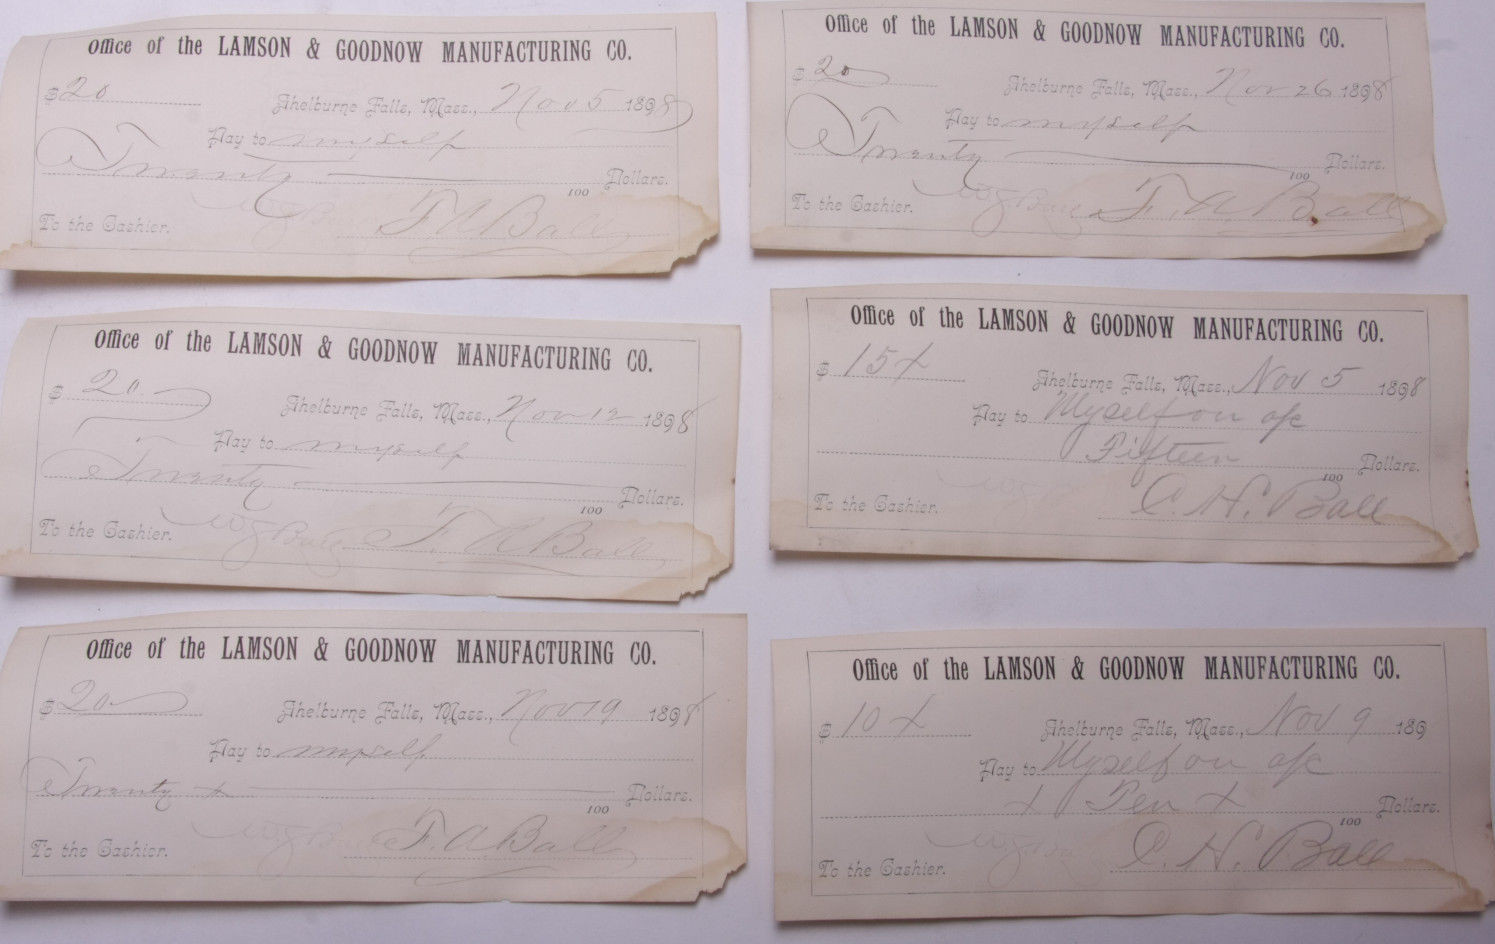 Office of the LAMSON & GOODNOW MANUFACTURING CO.
$ 20 Shelburne Falls, Mass., Nov 5 1898
Pay to myself
Twenty 100 Dollars.
To the Cashier. F. A. Ball
Office of the LAMSON & GOODNOW MANUFACTURING CO.
$ 20 Shelburne Falls, Mass., Nov 12 1898
Pay to myself
Twenty 100 Dollars.
To the Cashier. F. A. Ball
Office of the LAMSON & GOODNOW MANUFACTURING CO.
$ 20 Shelburne Falls, Mass., Nov 19 1898
Pay to myself
Twenty x 100 Dollars.
To the Cashier. F. A. Ball
Office of the LAMSON & GOODNOW MANUFACTURING CO.
$ 20 Shelburne Falls, Mass., Nov 26 1898
Pay to myself
Twenty 100 Dollars.
To the Cashier. F. A. Ball
Office of the LAMSON & GOODNOW MANUFACTURING CO.
$ 15 x Shelburne Falls, Mass., Nov 5 1898
Pay to Myself on a/c
Fifteen 100 Dollars.
To the Cashier. C. H. Ball
Office of the LAMSON & GOODNOW MANUFACTURING CO.
$ 10 x Shelburne Falls, Mass., Nov 9 189
Pay to Myself on a/c
x Ten x 100 Dollars.
To the Cashier. C. H. Ball